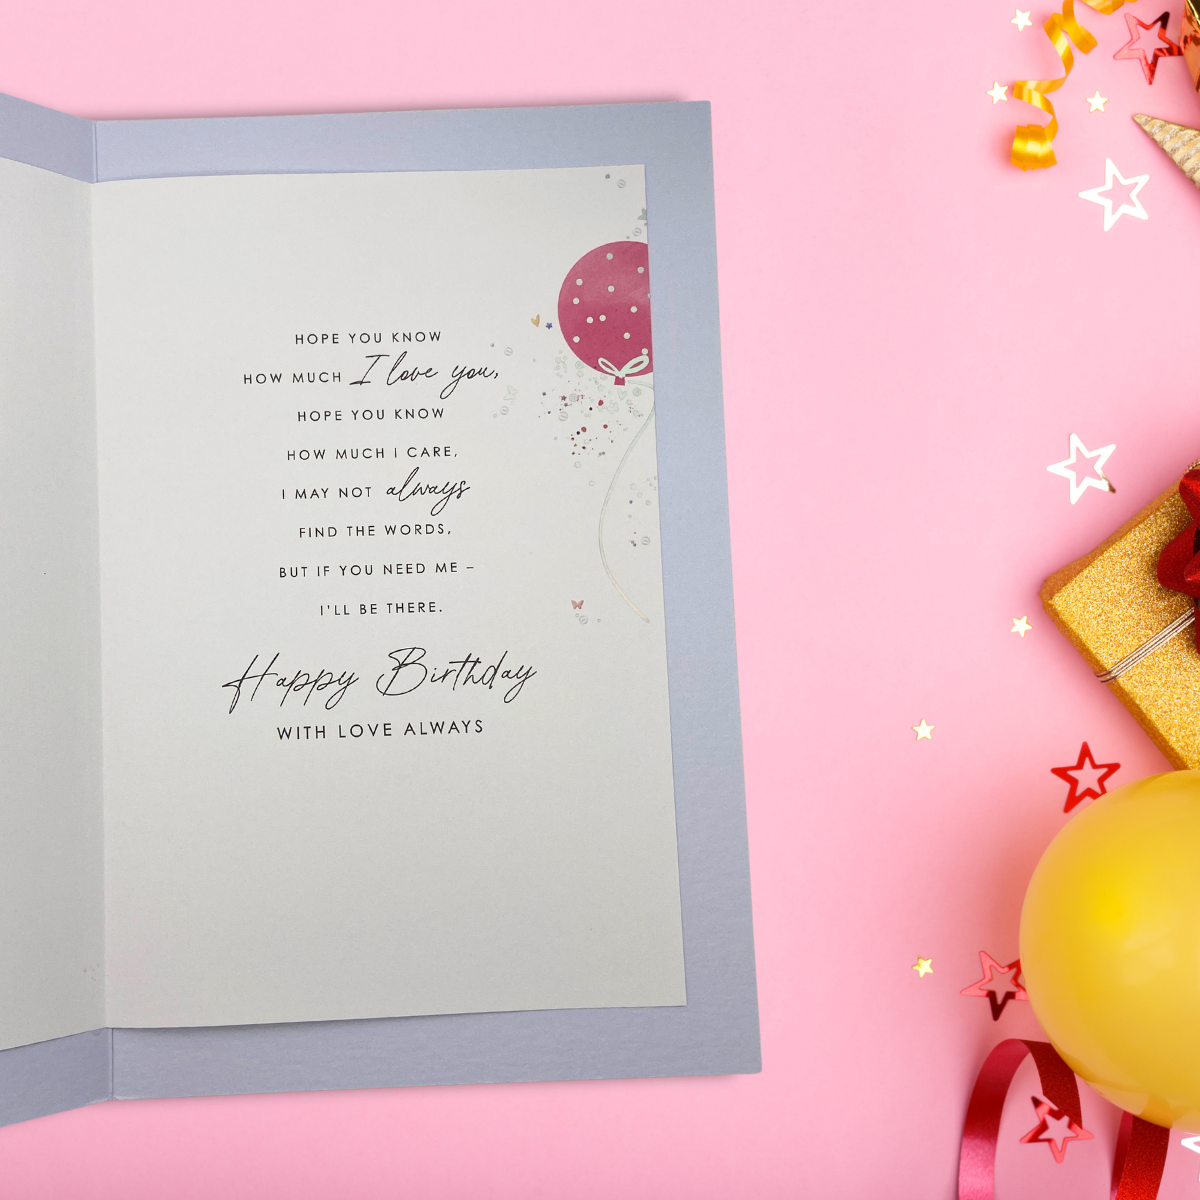 HOPE YOU KNOW
HOW MUCH I love you,
HOPE YOU KNOW
HOW MUCH I CARE,
I MAY NOT always
FIND THE WORDS,
BUT IF YOU NEED ME –
I'LL BE THERE.
Happy Birthday
WITH LOVE ALWAYS